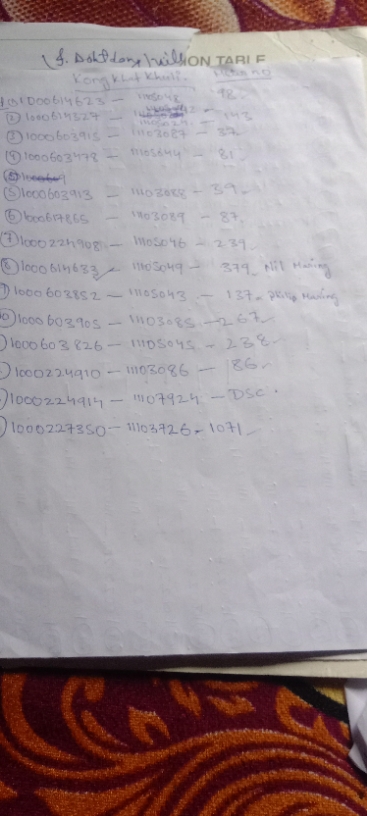 ION TABLE
① 1000614623 – 11105048 98
② 1000614527 – 143
③ 1000603915 – 11103087 – 37
④ 1000603478 – 11105044 – 81
⑤ 1000603913 – 11103088 – 39
⑥ 1000617865 – 11103089 – 87
⑦ 1000224908 – 11105046 – 239
⑧ 1000614633 – 11105049 – 379
1000603852 – 11105043 – 137
1000603905 – 11103085 – 267
1000603826 – 11105045 – 238
1000224910 – 11103086 – 86
1000224914 – 11107924 – DSC
1000227350 – 11103726 – 1071